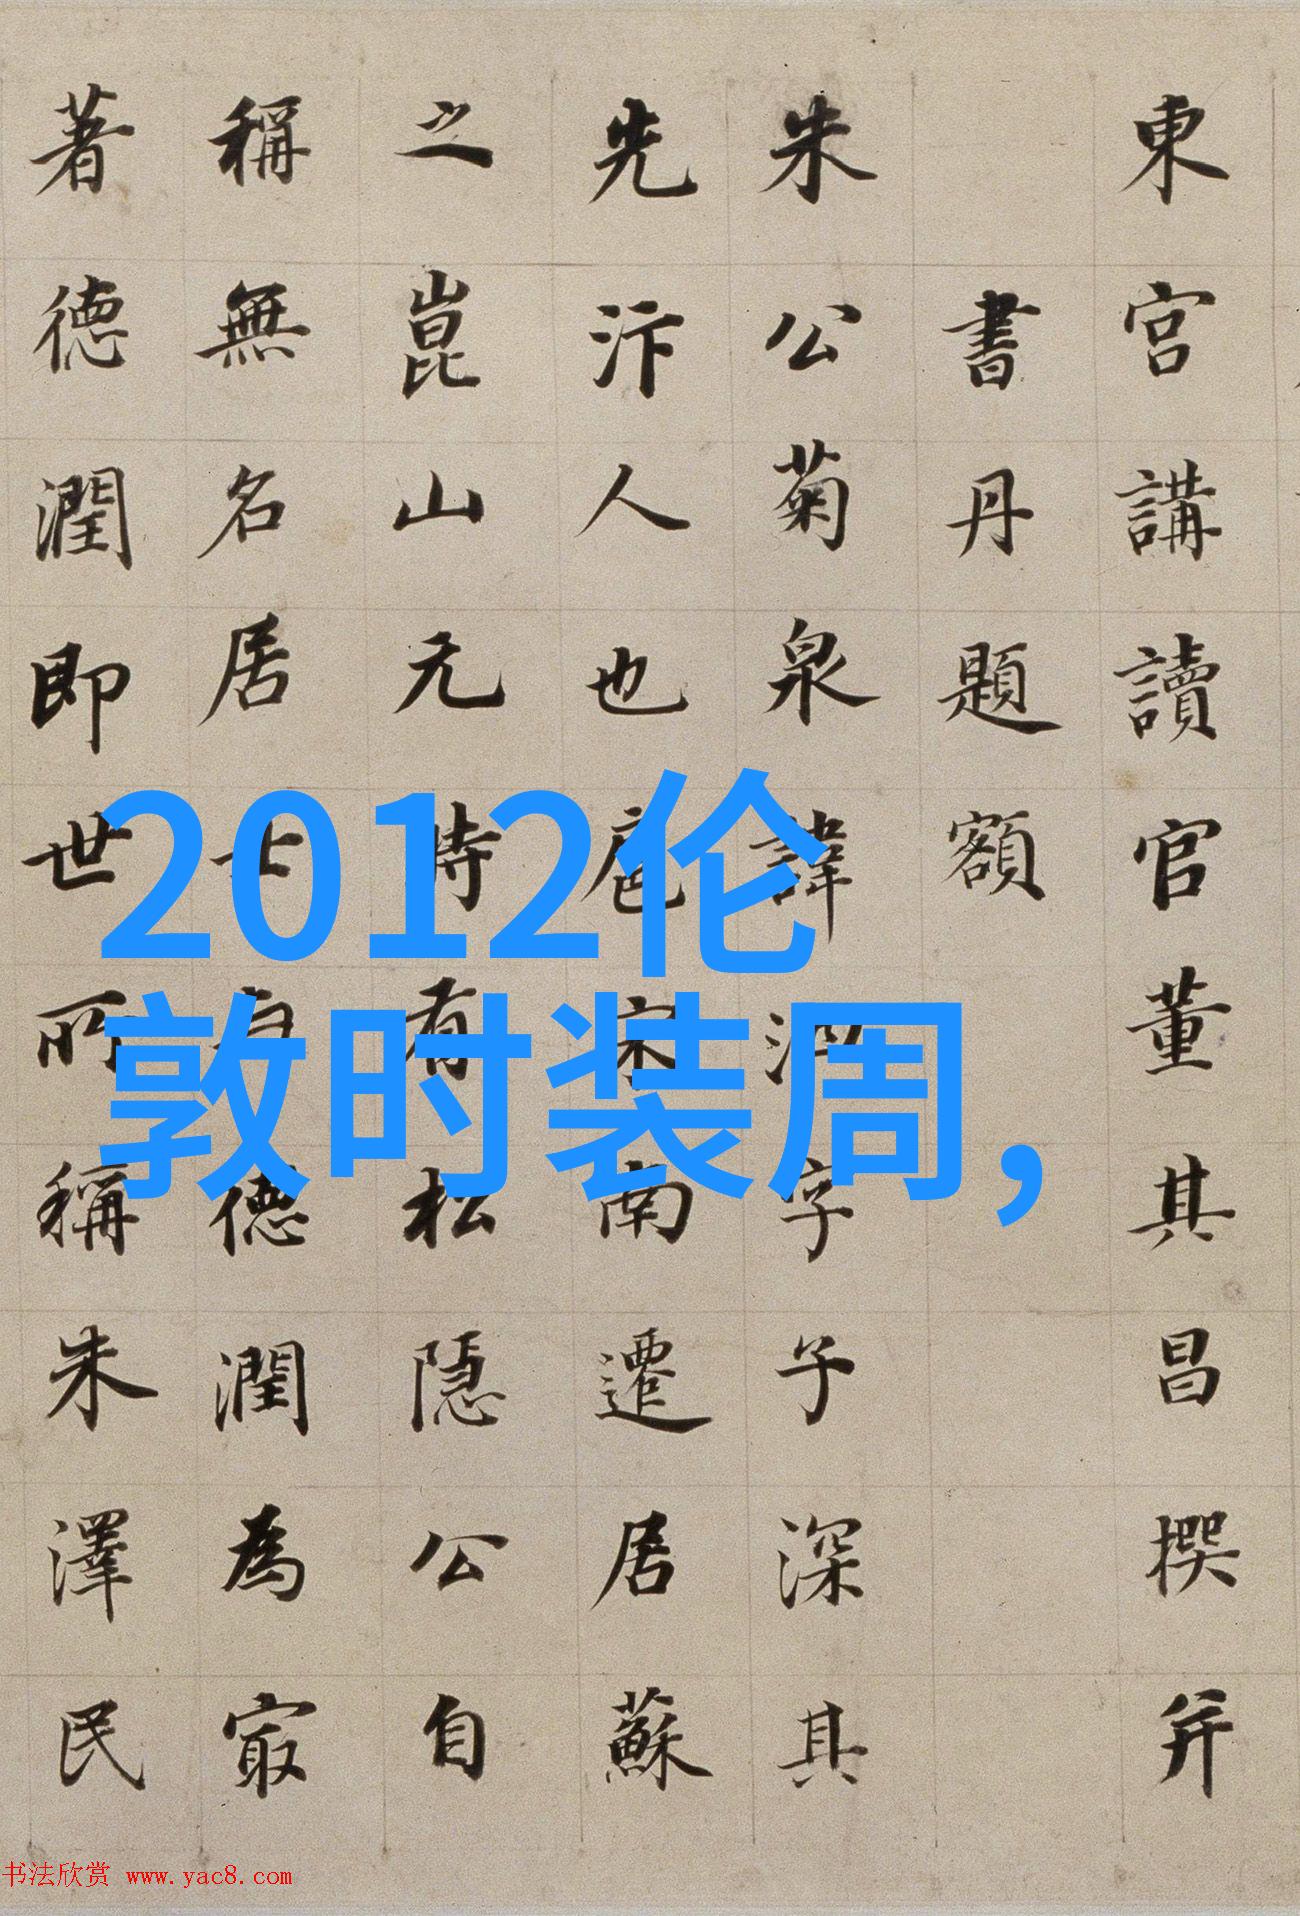 東宮講讀官董其昌撰并
書丹題額
朱公菊泉諱泗字子深其
先汴人也扈宋南遷居蘇
之崑山元時有松隱公自
稱無名居士有德潤為最
著德潤即世所稱朱澤民
2012伦
敦时装周,
书法欣赏 www.yac8.com